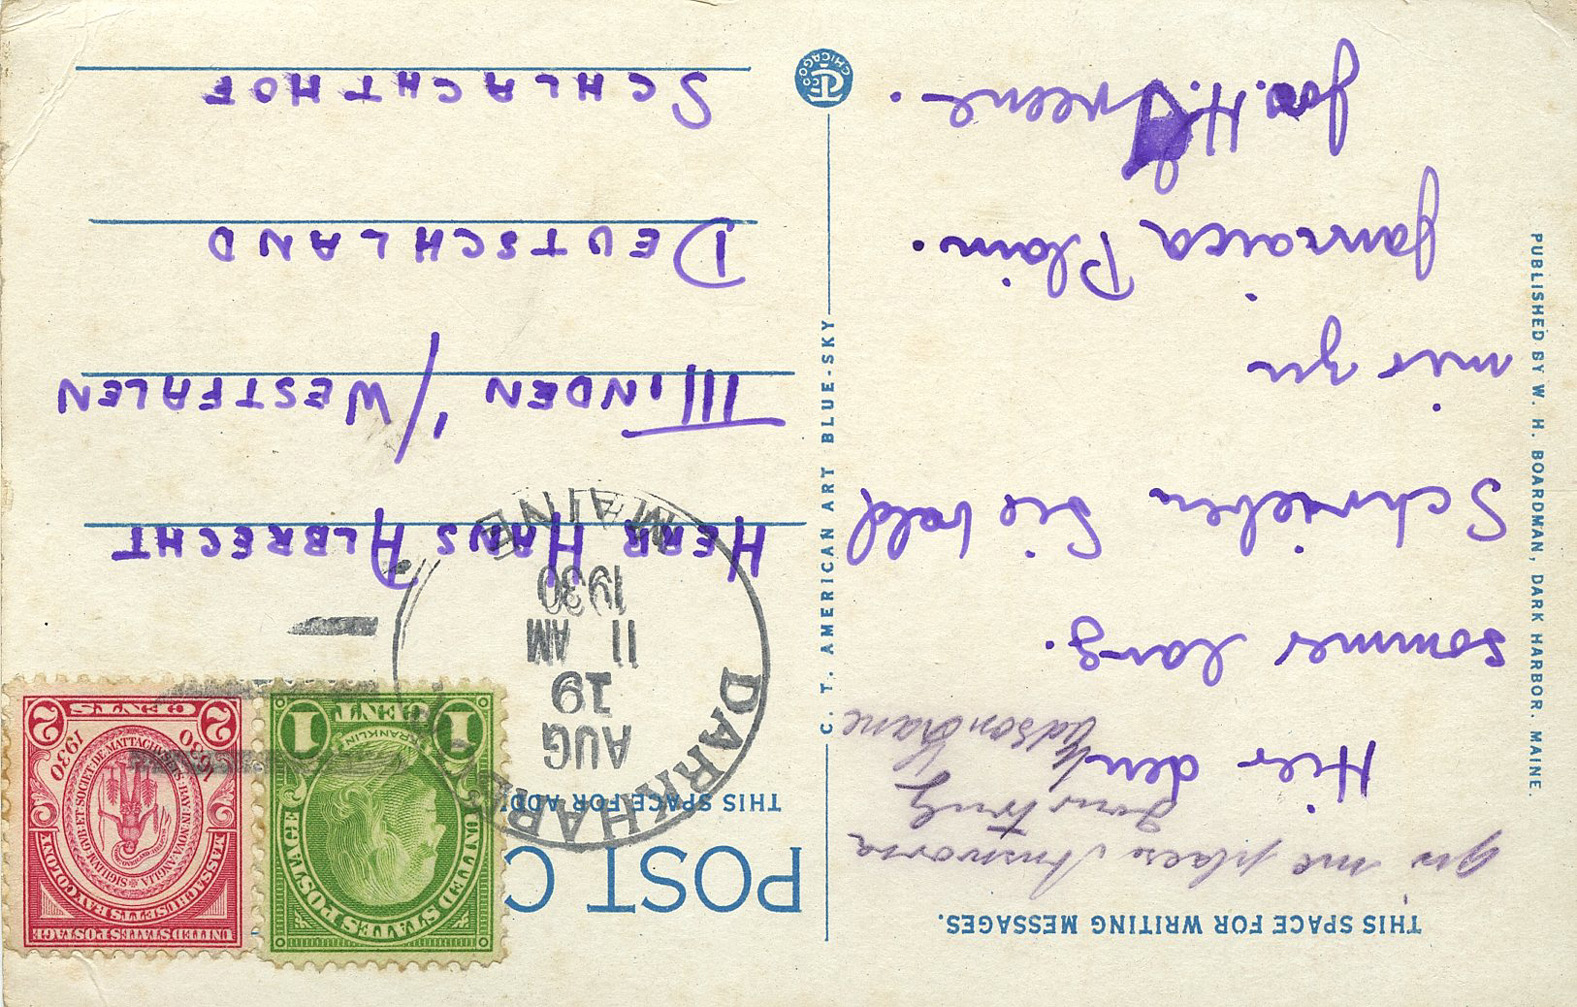 THIS SPACE FOR WRITING MESSAGES.
yours truly
Hier den
sommer lang.
Schreiben Sie bald
mir zu
Jamaica Plain.
Jos. H. Greene.
PUBLISHED BY W. H. BOARDMAN, DARK HARBOR. MAINE.
C. T. AMERICAN ART BLUE-SKY
CTCO
CHICAGO
POST C
THIS SPACE FOR ADD
DARK HAR
MAINE
AUG
19
11 AM
1930
UNITED STATES POSTAGE
FRANKLIN
1 CENT 1
UNITED STATES POSTAGE
MASSACHUSETTS BAY COLONY
1630 1930
2 CENTS 2
HERR HANS ALBRECHT
MINDEN I/WESTFALEN
DEUTSCHLAND
SCHLACHTHOF